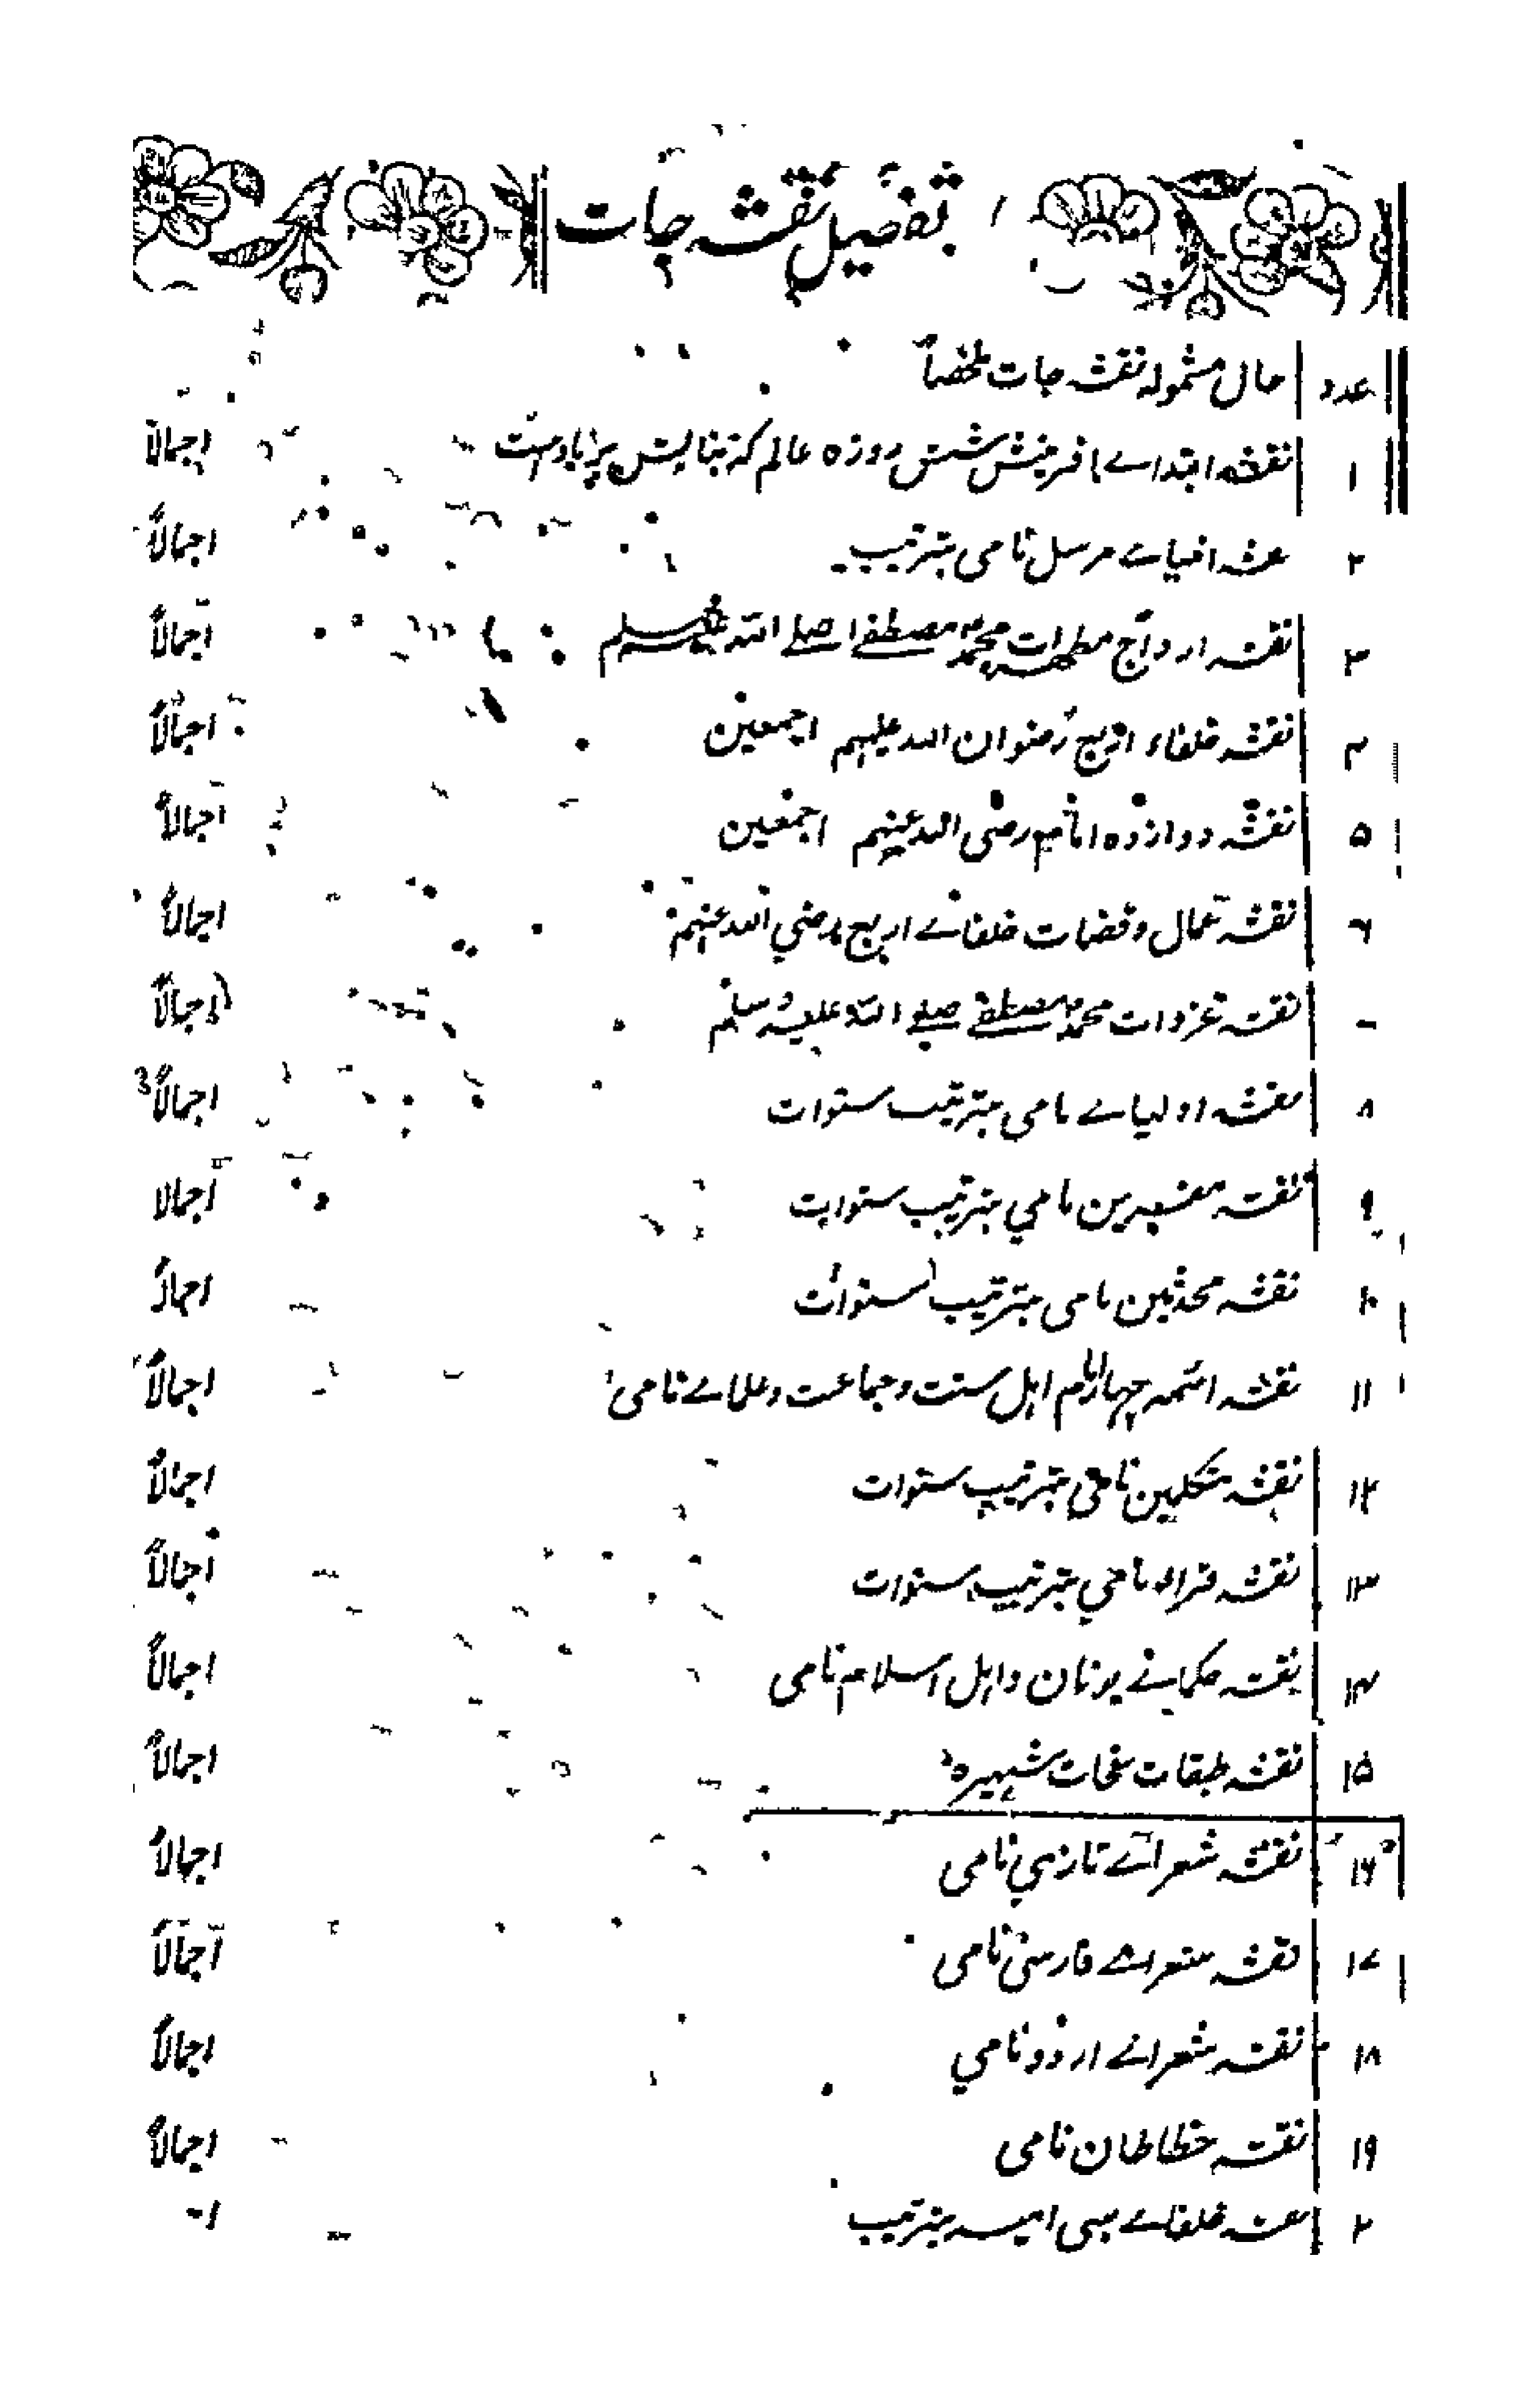 تفصیل نقشہ جات
عدد حال مشمولہ نقشہ جات ملخصاً
۱ نقشہ ابتداے افرینش شش روزہ عالم کہ اجمالاً
۲ انبیاے مرسل نامی بترتیب اجمالاً
۳ نقشہ ازواج مطہرات محمد مصطفےا صلے اللہ علیہ وسلم اجمالاً
۴ نقشہ خلفاء اربع رضوان اللہ علیہم اجمعین اجمالاً
۵ نقشہ دوازدہ امام رضی اللہ عنہم اجمعین اجمالاً
۶ نقشہ عمال و قضات خلفاے اربع رضي اللہ عنہم اجمالاً
نقشہ غزوات محمد مصطفے صلے اللہ علیہ وسلم اجمالاً
۸ نقشہ اولیاے نامی بترتیب سنوات اجمالاً
۹ نقشہ مفسرین نامي بترتیب سنوات اجمالا
۱۰ نقشہ محدثین نامی بترتیب سنوات اجمالاً
۱۱ نقشہ ائمہ چہار امام اہل سنت و جماعت و علماے نامی اجمالاً
۱۲ نقشہ متکلمین نامی بترتیب سنوات اجمالاً
۱۳ نقشہ قراء نامي بترتیب سنوات اجمالاً
۱۴ نقشہ حکماے یونان و اہل اسلام نامی اجمالاً
۱۵ نقشہ طبقات شہیرہ اجمالاً
۱۶ نقشہ شعراے تازي نامی اجمالاً
۱۷ نقشہ شعراے فارسی نامی اجمالاً
۱۸ نقشہ شعراے اردو نامي اجمالاً
۱۹ نقشہ خطاطان نامی اجمالاً
۲ خلفاے بنی امیہ بترتیب